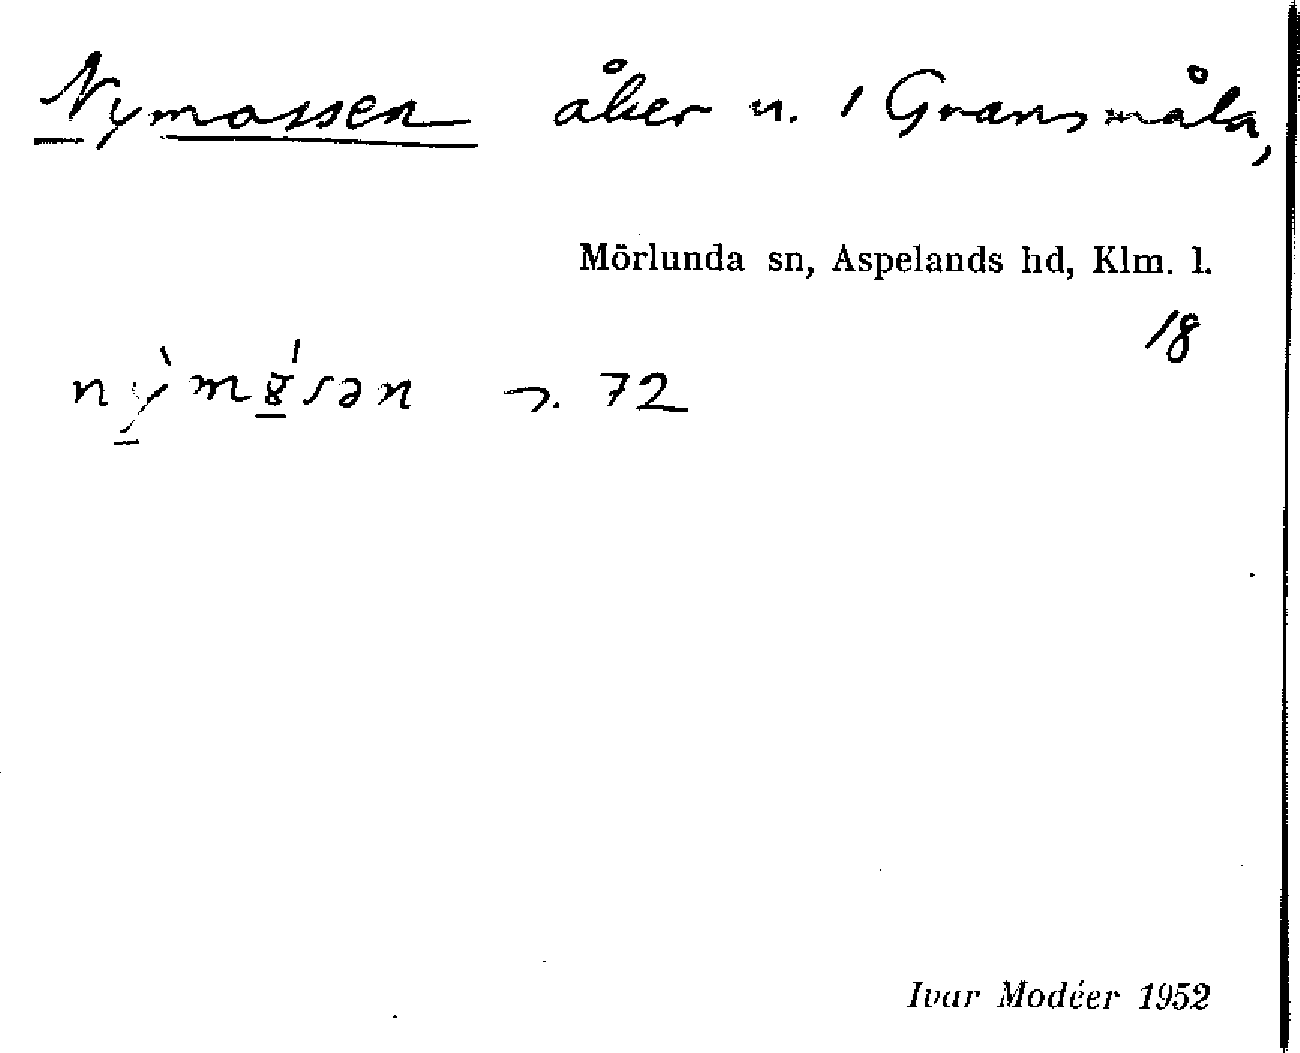 Nymossen åker n. 1 Gransmåla,
Mörlunda sn, Aspelands hd, Klm. l.
18
72
Ivar Modéer 1952